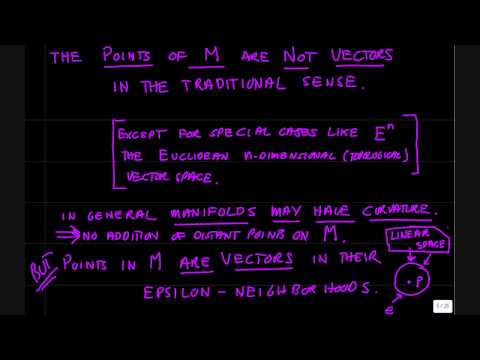 THE POINTS OF M ARE NOT VECTORS
IN THE TRADITIONAL SENSE.
EXCEPT FOR SPECIAL CASES LIKE Eⁿ
THE EUCLIDEAN n-DIMENSIONAL (TOPOLOGICAL)
VECTOR SPACE.
IN GENERAL MANIFOLDS MAY HAVE CURVATURE.
⇒ NO ADDITION OF DISTANT POINTS ON M.
LINEAR
SPACE
BUT POINTS IN M ARE VECTORS IN THEIR
·P
EPSILON - NEIGHBORHOODS.
ε